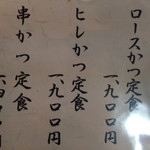 ロースかつ定食
一、九〇〇円
ヒレかつ定食
一、九〇〇円
串かつ定食